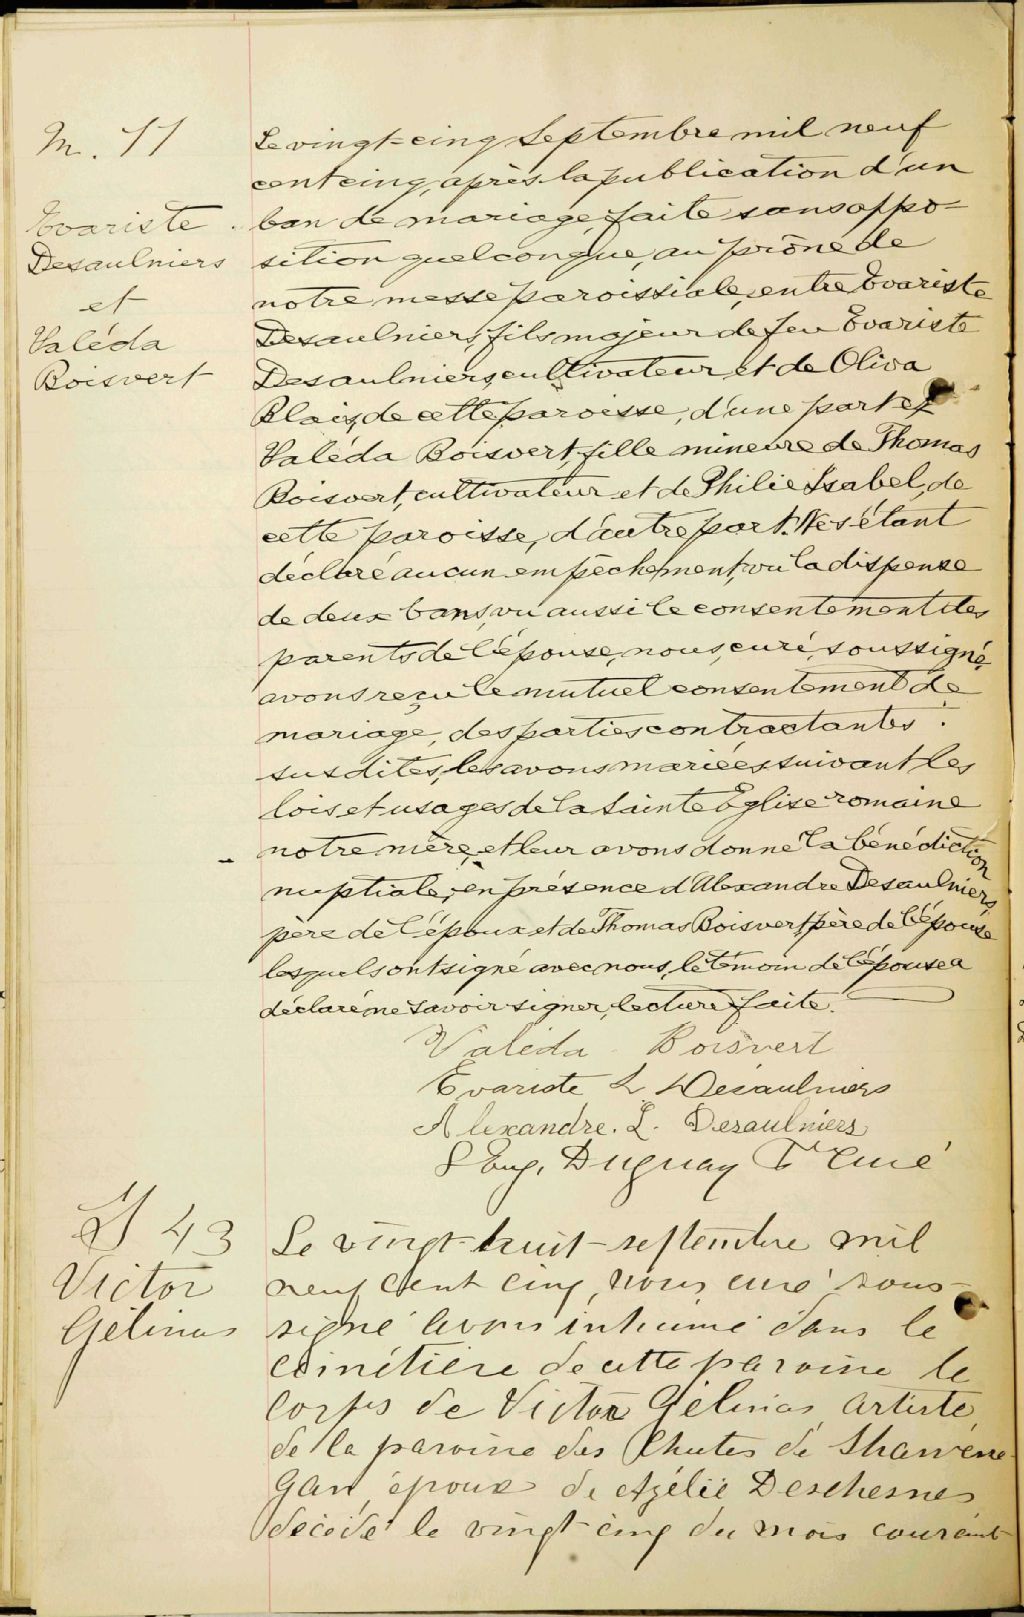 M. 11
Le vingt-cinq Septembre mil neuf
cent cinq, après la publication d'un
Evariste
Desaulniers
et
Valéda
Boisvert
ban de mariage, faite sans oppo-
sition quelconque, au prône de
notre messe paroissiale, entre Evariste
Desaulniers, fils majeur de feu Evariste
Desaulniers, cultivateur et de Oliva
Blais, de cette paroisse, d'une part et
Valéda Boisvert, fille mineure de Thomas
Boisvert, cultivateur et de Philie Isabel, de
cette paroisse, d'autre part. Ne s'étant
déclaré aucun empêchement, vu la dispense
de deux bans, vu aussi le consentement des
parents de l'épouse, nous, curé, soussigné,
avons reçu le mutuel consentement de
mariage, des parties contractantes
susdites, les avons mariées suivant les
lois et usages de la Sainte Eglise romaine
notre mère, et leur avons donné la bénédiction
nuptiale, en présence d'Alexandre Desaulniers,
père de l'époux et de Thomas Boisvert, père de l'épouse
lesquels ont signé avec nous, le témoin de l'épouse a
déclaré ne savoir signer, lecture faite.
Valéda Boisvert
Evariste L. Desaulniers
Alexandre. L. Desaulniers
Eug. Duguay Ptre Curé
S 43
Victor
Gélinas
Le vingt-huit-septembre mil
neuf cent cinq, nous curé sous-
signé avons inhumé dans le
cimétière de cette paroisse le
corps de Victor Gélinas artiste,
de la paroisse des Chutes de Shawene-
gan, époux de Azélie Deschesnes
décédé le vingt-cinq du mois courant